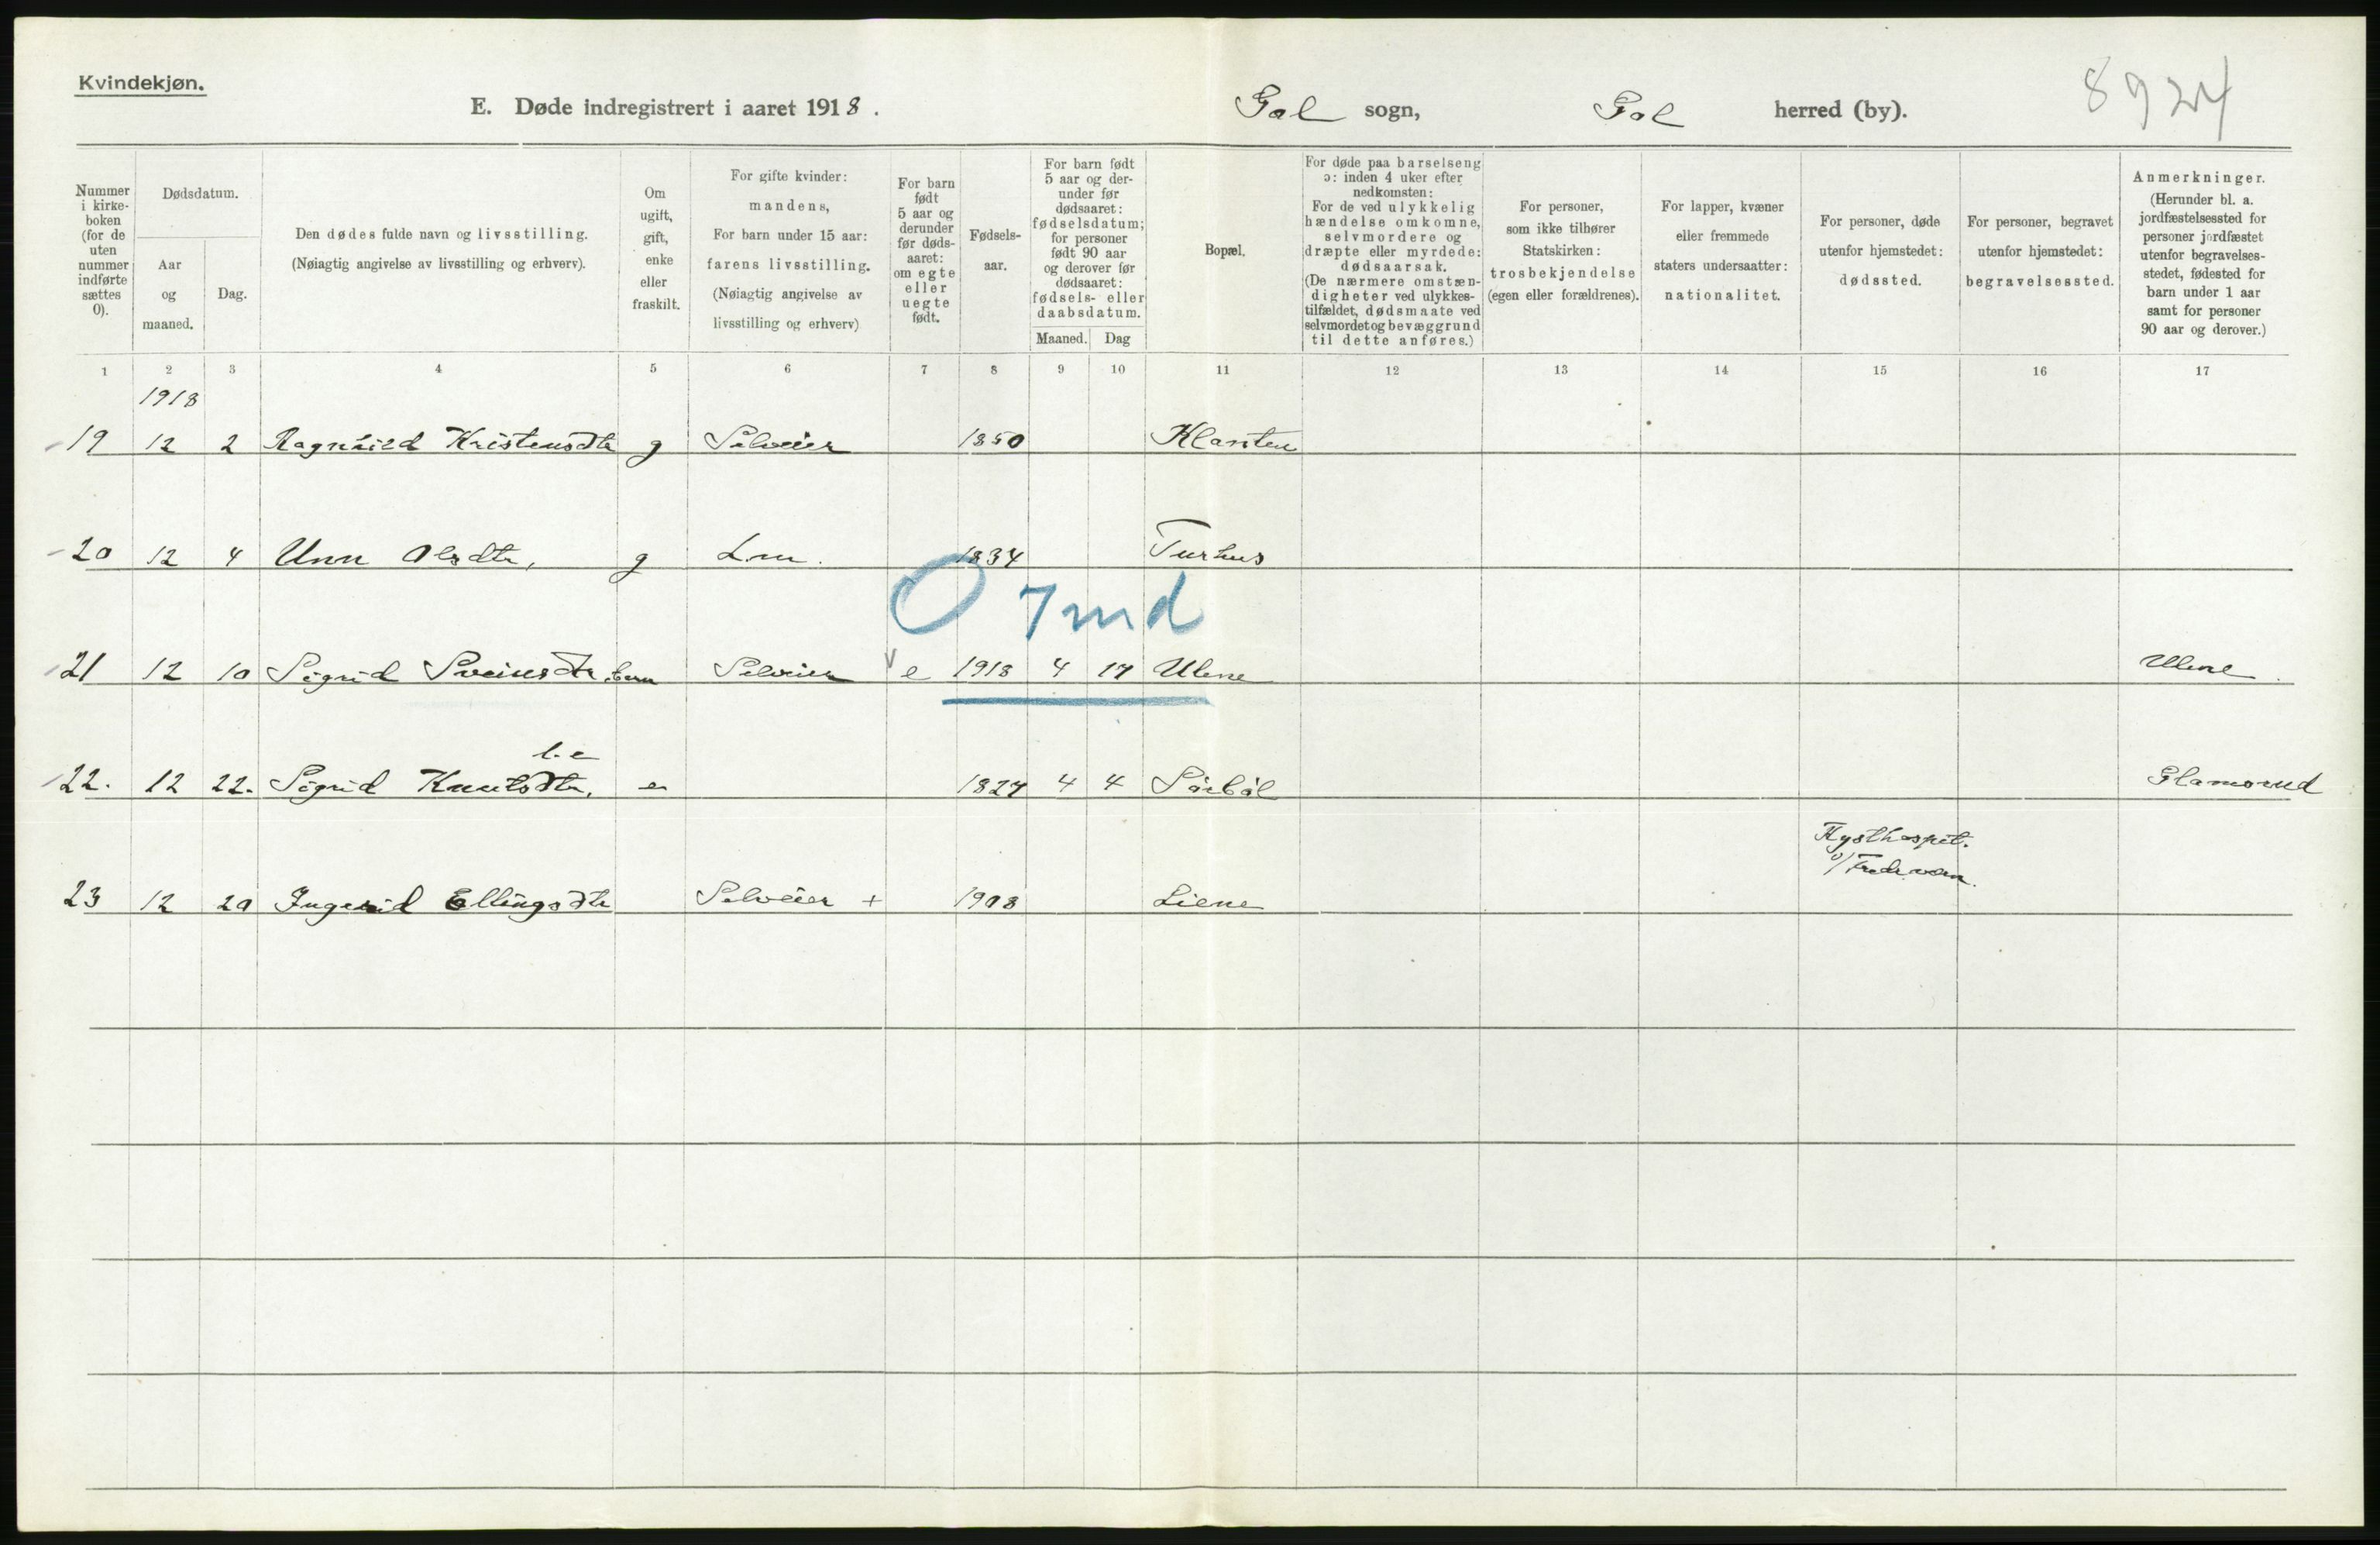 Kvindekjøn.
E. Døde indregistrert i aaret 1918.
Gol sogn, Gol herred (by).
8924
Nummer i kirke-boken (for de uten nummer indførte sættes 0).
Dødsdatum.
Aar og maaned.
Dag.
Den dødes fulde navn og livsstilling.
(Nøiagtig angivelse av livsstilling og erhverv).
Om ugift, gift, enke eller fraskilt.
For gifte kvinder: mandens,
For barn under 15 aar: farens livsstilling.
(Nøiagtig angivelse av livsstilling og erhverv)
For barn født 5 aar og derunder før døds-aaret: om egte eller uegte født.
Fødsels-aar.
For barn født 5 aar og der-under før dødsaaret: fødselsdatum; for personer født 90 aar og derover før dødsaaret: fødsels- eller daabsdatum.
Maaned. Dag
Bopæl.
For døde paa barselseng ɔ: inden 4 uker efter nedkomsten:
For de ved ulykkelig hændelse omkomne, selvmordere og dræpte eller myrdede: dødsaarsak.
(De nærmere omstæn-digheter ved ulykkes-tilfældet, dødsmaate ved selvmordet og bevæggrund til dette anføres.)
For personer, som ikke tilhører Statskirken: trosbekjendelse (egen eller forældrenes).
For lapper, kvæner eller fremmede staters undersaatter: nationalitet.
For personer, døde utenfor hjemstedet: dødssted.
For personer, begravet utenfor hjemstedet: begravelsessted.
Anmerkninger.
(Herunder bl. a. jordfæstelsessted for personer jordfæstet utenfor begravelses-stedet, fødested for barn under 1 aar samt for personer 90 aar og derover.)
1 2 3 4 5 6 7 8 9 10 11 12 13 14 15 16 17
1918
19 12 2 Ragnhild Kristensdtr g Selveier 1850 Klanten
20 12 4 Unn Olsdtr, g Lm. 1834 Turhus
0 7 md
21 12 10 Sigrid Sveinsdtr. barn Selveier e 1918 4 17 Ulene Ulene.
l.e
22. 12 22. Sigrid Knutsdtr, e 1827 4 4 Sörböl Glamsrud
Kysthospit.
v/ Fredr.værn.
23 12 20 Ingerid Ellingsdtr Selveier + 1908 Liene